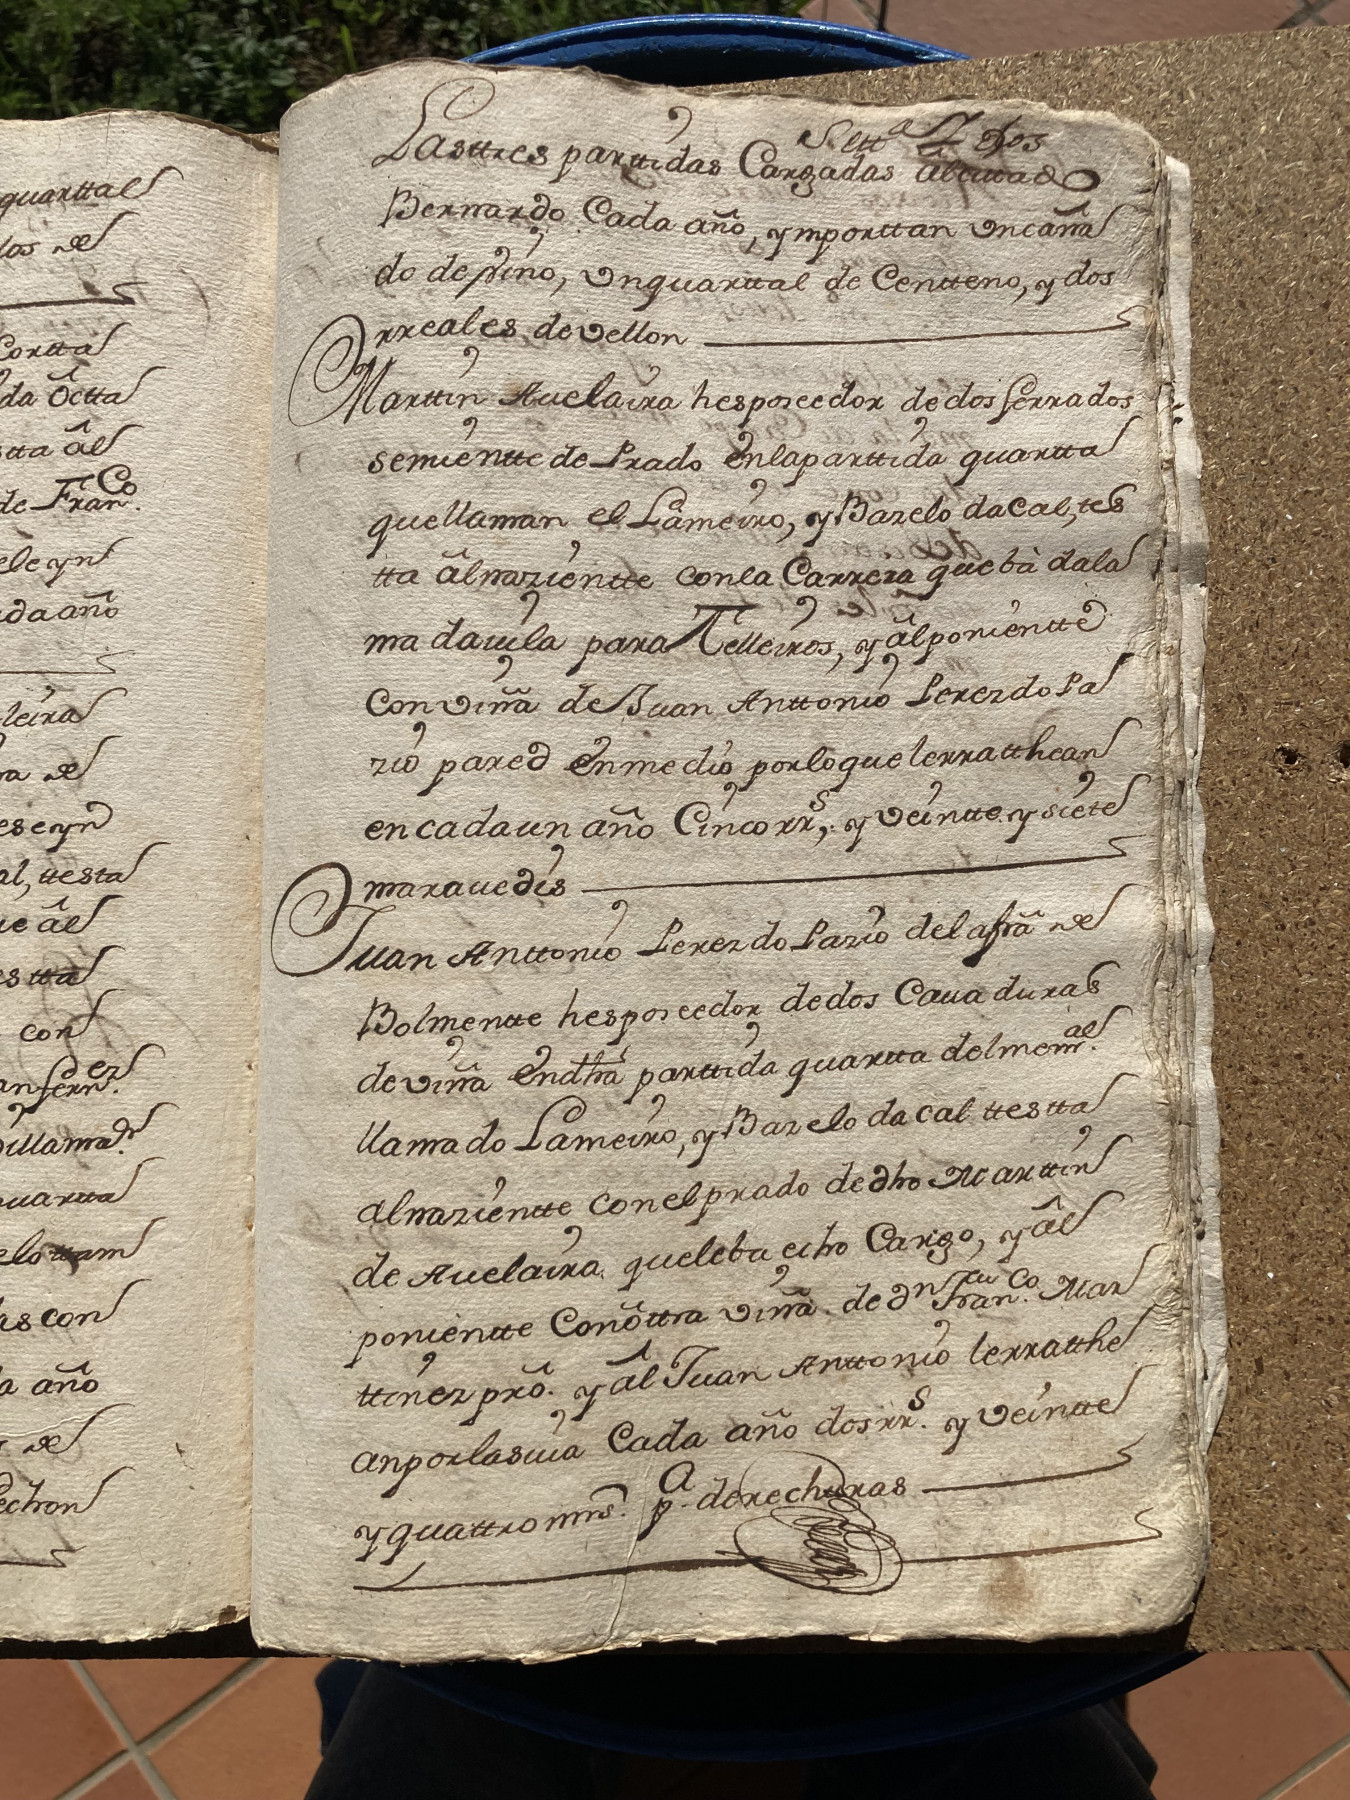 quarttal
los de
Cortta
da ôctta
stta âl
de Fran.co
ele yn
ada año
leira
ra de
ese yn
al, ttesta
ue âl
estta
con
an fern.dez
villamad.r
quartta
elo ttam
as con
a año
de
echon
Sett.a y dos
Las ttres parttidas Cargadas âl citado
Bernardo Cada año, y mporttan un caña
do de vino, un quarttal de Centteno, y dos
rreales de vellon
Marttin Auelaira hes poseedor de dos ferrados
semientte de Prado ên la parttida quartta
que llaman el Lâmeiro, y Bazelo da Cal, tes
tta âl nazientte con la Carrera que bà da la
ma da vila para Telleiros, y âl ponientte
con viña de Juan Anttonio Perez do Pa
zio pared ên medio por lo que le rratthean
en cada un año Cinco rr.s, y veintte y siete
marauedis
Juan Anttonio Perez do Pazio de la frã de
Bolmentte hes poseedor de dos Cauaduras
de viña ên dhã parttida quartta del mem.al
llamado Lameiro, y Bazelo da Cal ttestta
al nazientte con el prado de dho Marttin
de Auelaira que leba echo Cargo, y âl
ponientte Con ôttra viña de dn Fran.co Mar
ttinez prô. y âl Juan Anttonio le rratthe
an por la suia Cada año dos rr.s y veintte
y quattro mrs. p.a derechuras